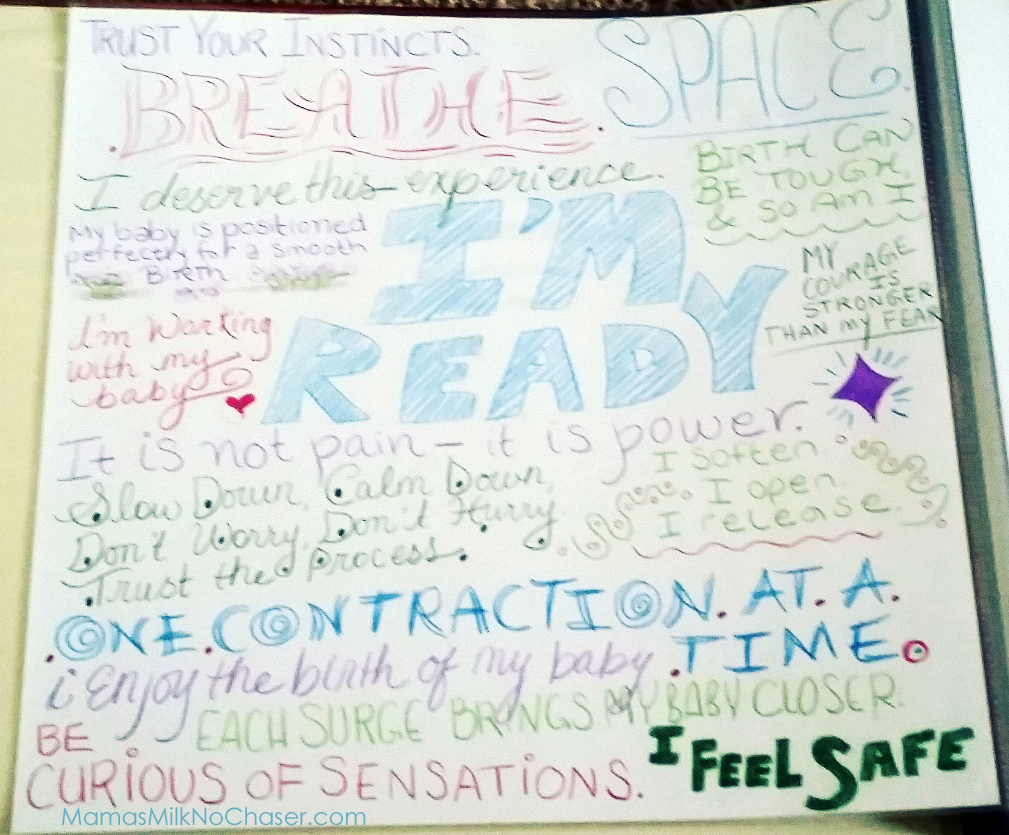 TRUST YOUR INSTINCTS.
SPACE.
.BREATHE.
I deserve this experience.
BIRTH CAN
BE TOUGH,
& SO AM I
My baby is positioned
perfectly for a smooth
Birth
I'M
READY
MY
COURAGE
IS
STRONGER
THAN my FEAR
I'm Working
with my
baby
It is not pain – it is power.
Slow Down, Calm Down,
Don't Worry, Don't Hurry.
Trust the Process.
I soften
I open
I release.
.ONE.CONTRACTION.AT.A.
.TIME.
i Enjoy the birth of my baby
EACH SURGE BRINGS MY BABY CLOSER.
BE
CURIOUS OF SENSATIONS.
I FEEL SAFE
MamasMilkNoChaser.com